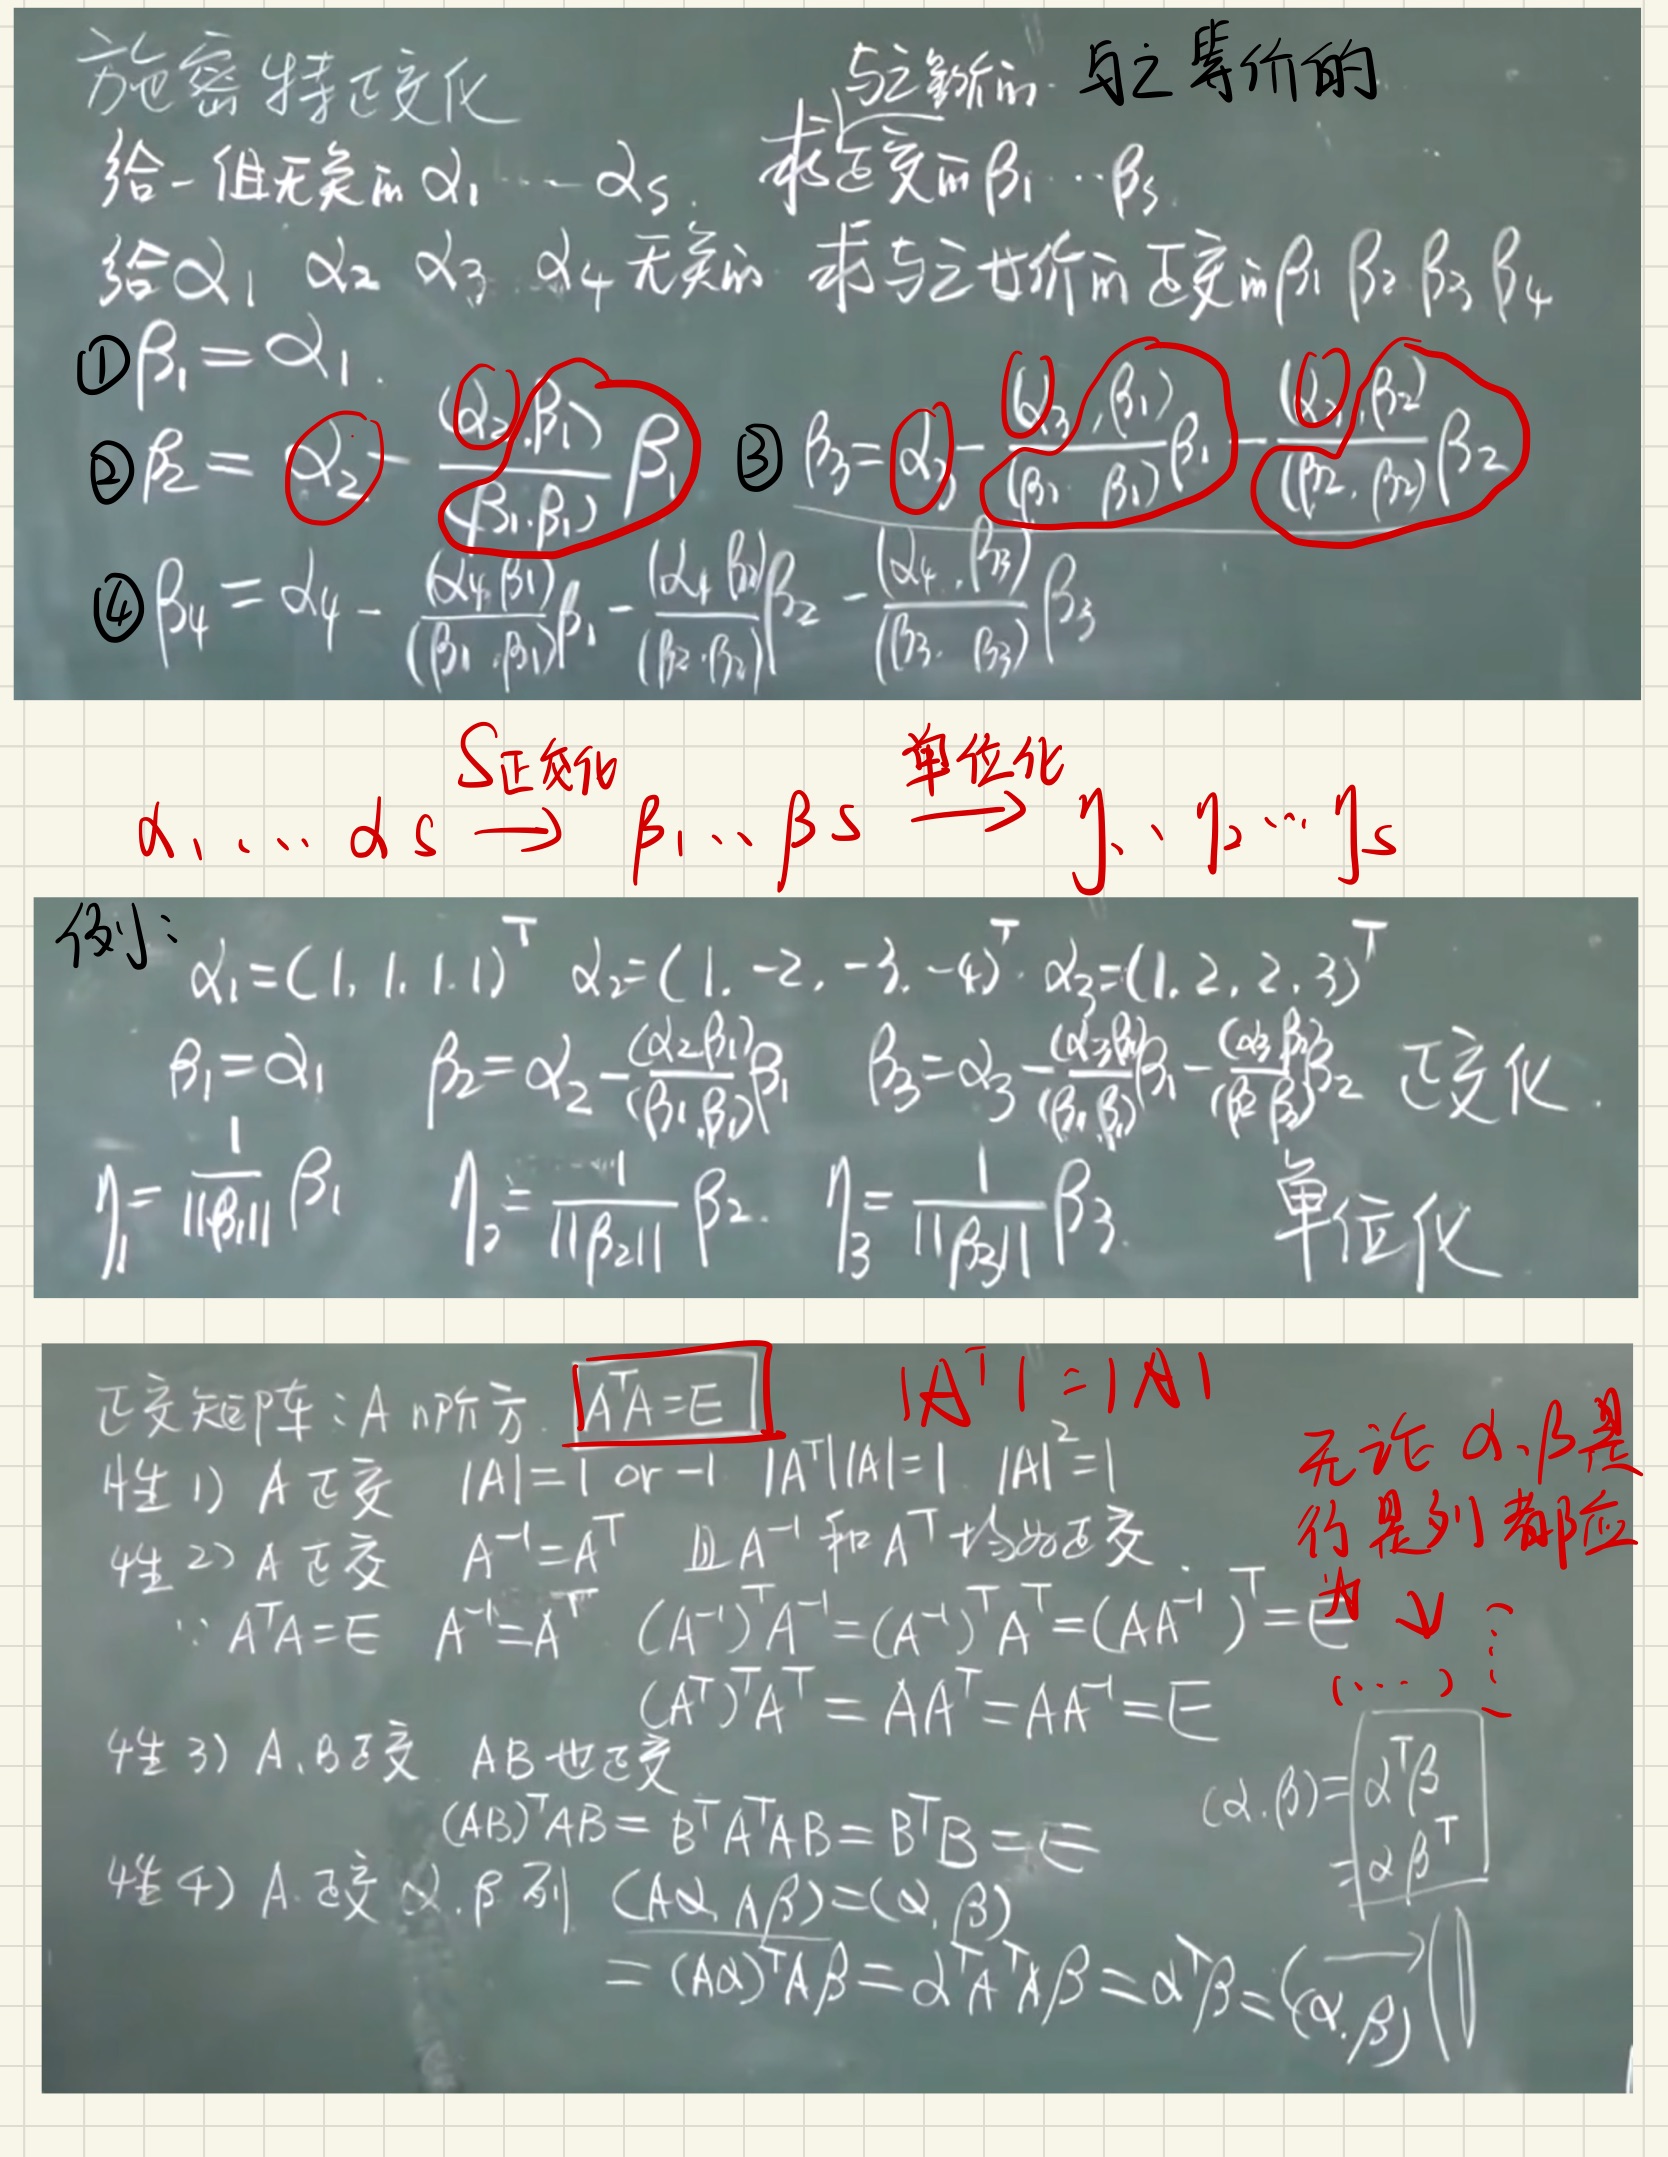 施密特正交化
与之等价的 与之等价的
给一组无关的 α₁ ⋯ αₛ. 求正交的β₁ ⋯ βₛ.
给α₁ α₂ α₃ α₄ 无关的 求与之廿价的正交的β₁ β₂ β₃ β₄
① β₁ = α₁.
② β₂ = α₂ - (α₂,β₁)/(β₁,β₁) β₁ ③ β₃ = α₃ - (α₃,β₁)/(β₁,β₁) β₁ - (α₃,β₂)/(β₂,β₂) β₂
④ β₄ = α₄ - (α₄,β₁)/(β₁,β₁) β₁ - (α₄,β₂)/(β₂,β₂) β₂ - (α₄,β₃)/(β₃,β₃) β₃
S正交化 单位化
α₁ … αs → β₁ … βs → η₁ … η₂ … ηs
例:
α₁=(1,1,1,1)ᵀ α₂=(1,-2,-3,-4)ᵀ. α₃=(1,2,2,3)ᵀ
β₁=α₁ β₂=α₂-(α₂β₁)/(β₁,β₁) β₁ β₃=α₃-(α₃β₁)/(β₁,β₁) β₁-(α₃β₂)/(β₂β₂) β₂ 正交化.
η₁=1/||β₁|| β₁ η₂=1/||β₂|| β₂. η₃=1/||β₃|| β₃. 单位化
正交矩阵:A n阶方. AᵀA=E |Aᵀ|=|A|
性1) A正交 |A|=1 or -1 |Aᵀ||A|=1 |A|²=1
性2) A正交 A⁻¹=Aᵀ 且A⁻¹和Aᵀ均为正交.
∵ AᵀA=E A⁻¹=Aᵀ (A⁻¹)ᵀA⁻¹=(A⁻¹)ᵀAᵀ=(AA⁻¹)ᵀ=E
(Aᵀ)ᵀAᵀ=AAᵀ=AA⁻¹=E
性3) A、B正交 AB也正交
(AB)ᵀAB=BᵀAᵀAB=BᵀB=E
性4) A.正交 α.β列 (Aα,Aβ)=(α,β)
=(Aα)ᵀAβ=αᵀAᵀAβ=αᵀβ=(α.β)
无论α、β是
行是列都应
为 ↓
(····)
(α.β)=αᵀβ
=αβᵀ